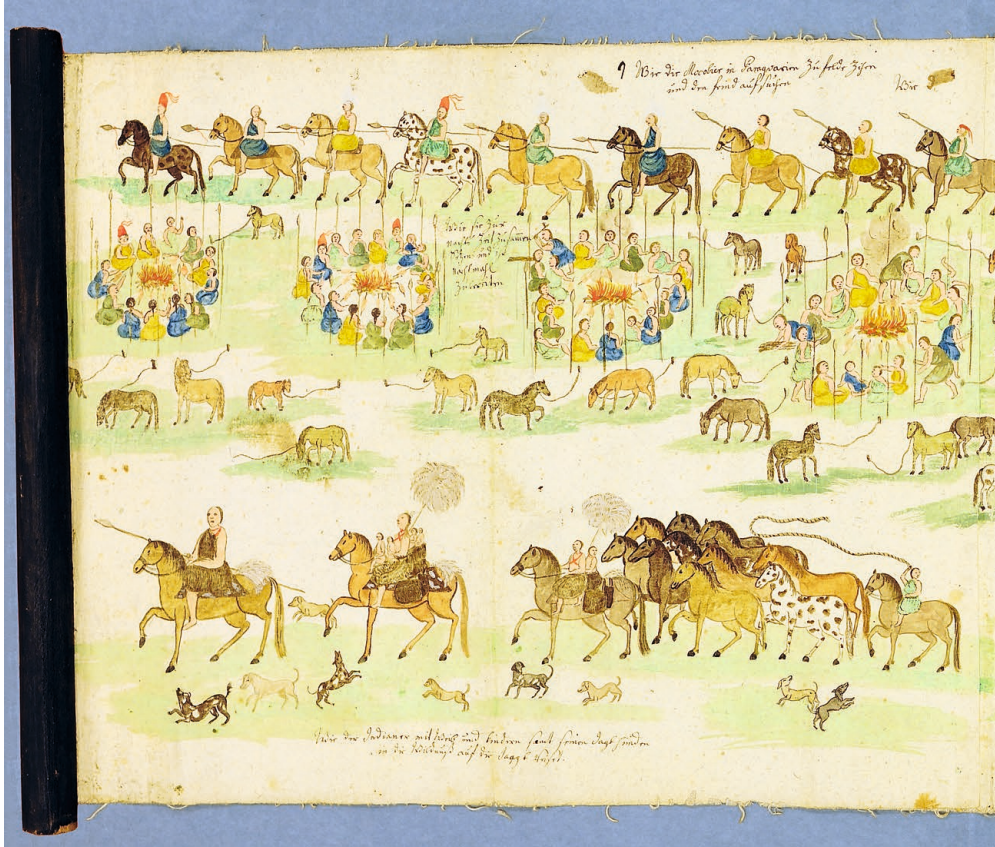 9 Wie die Mocobier in Paraquarien zu felde Zihen
und den feind aufsuchen
Wie
Wie sie zur
nacht Zeit Zusamen
und
nachtmahl
Wie der Indianer mit Weib und kindern samt seinen Jagt hunden
in die auf die Jagt